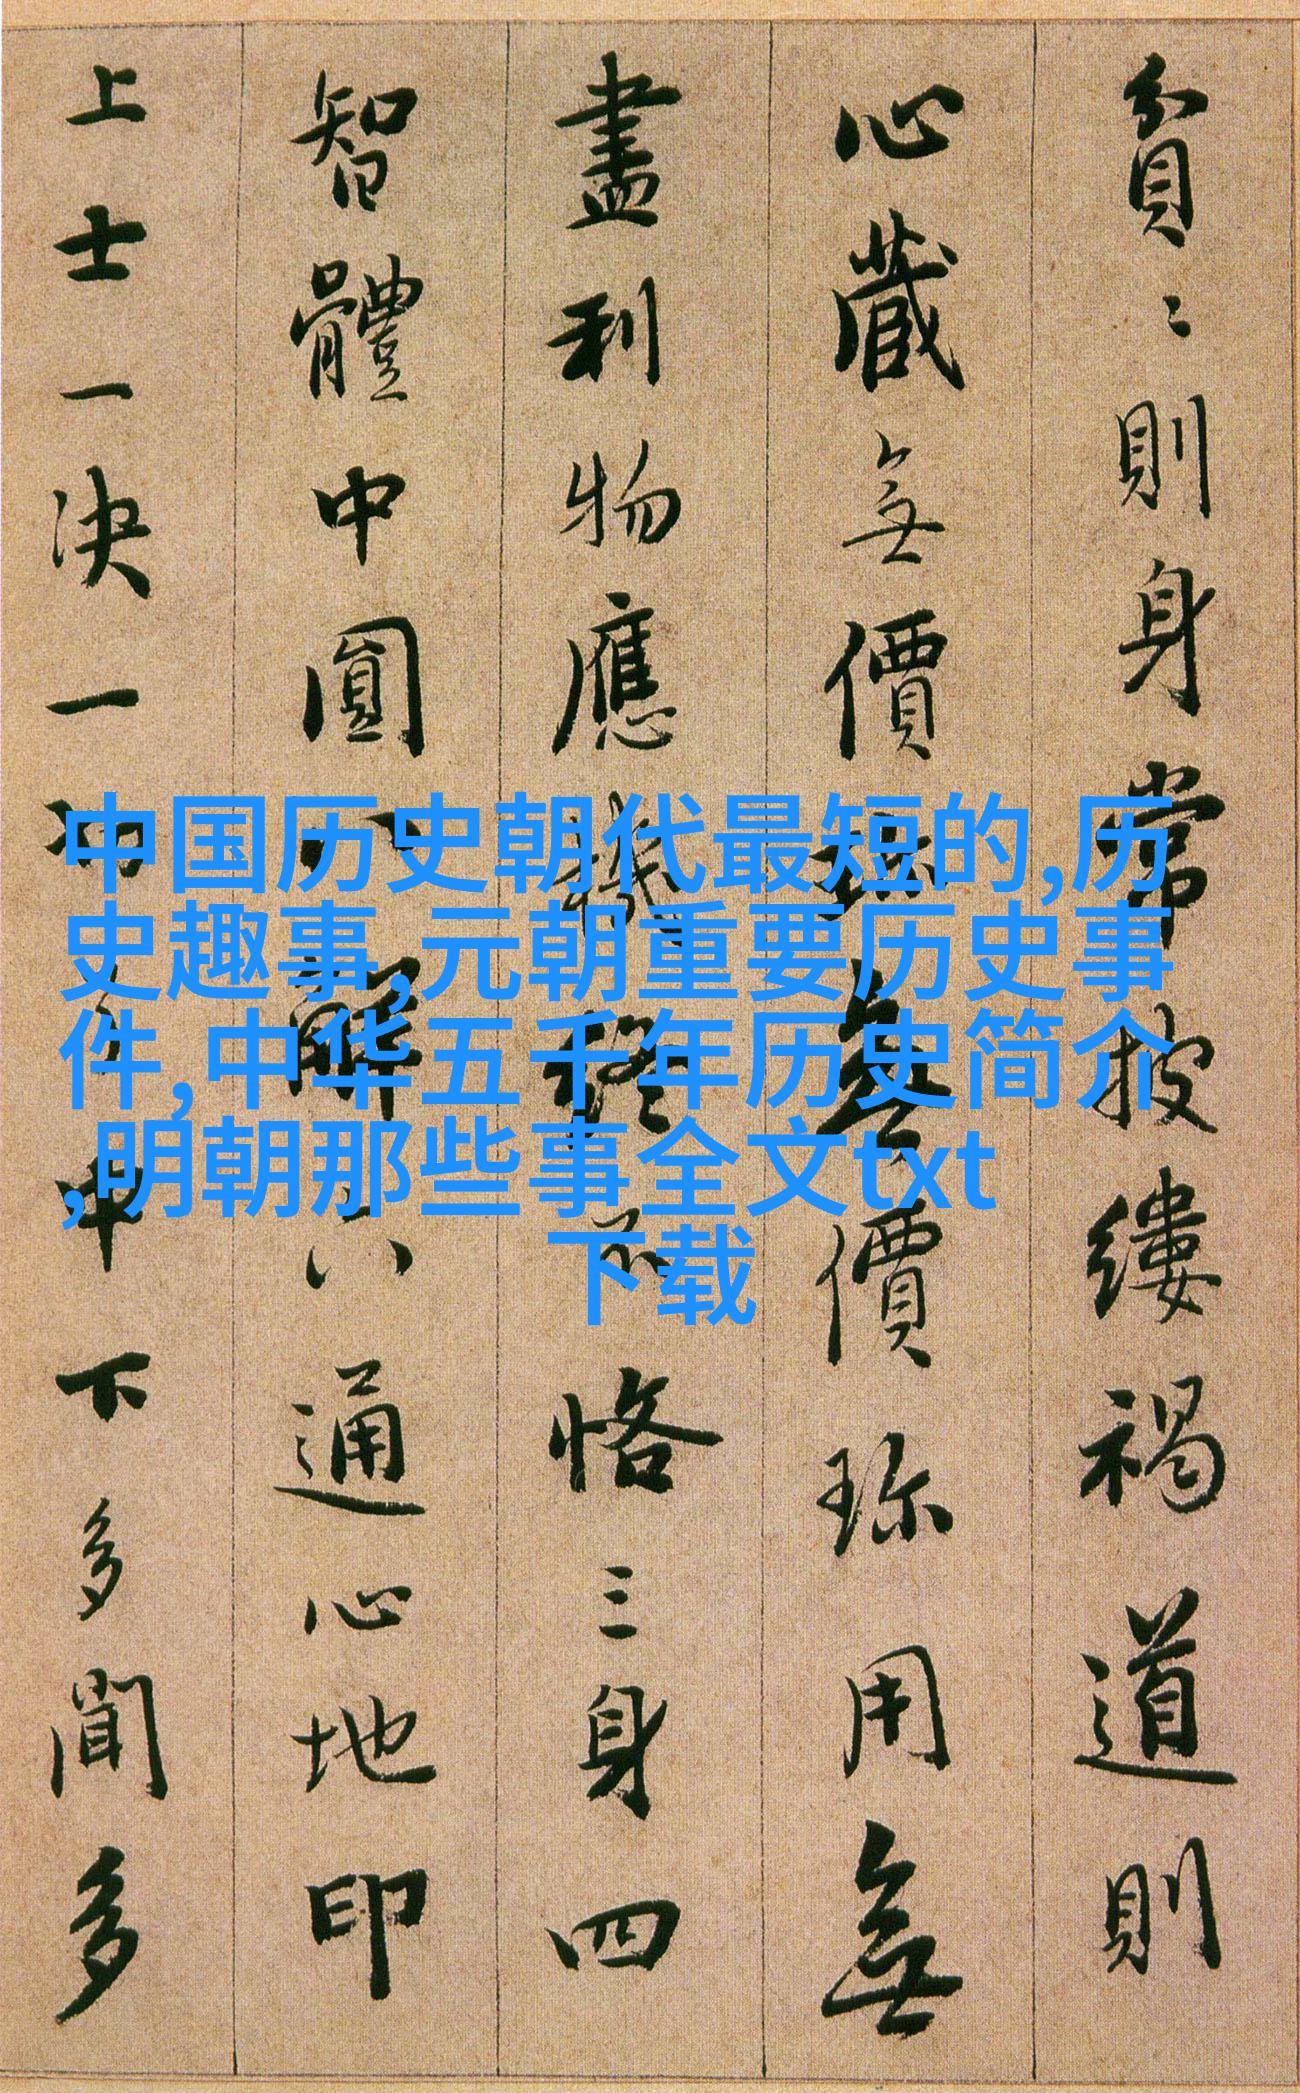 貧〻則身常披縷褐道則
心藏無價珎無價珎用無
盡利物應機終不恪三身四
智體中圓八解六通心地印
上士一決一切了中下多聞多
中国历史朝代最短的,历
史趣事,元朝重要历史事
件,中华五千年历史简介
,明朝那些事全文txt
下载